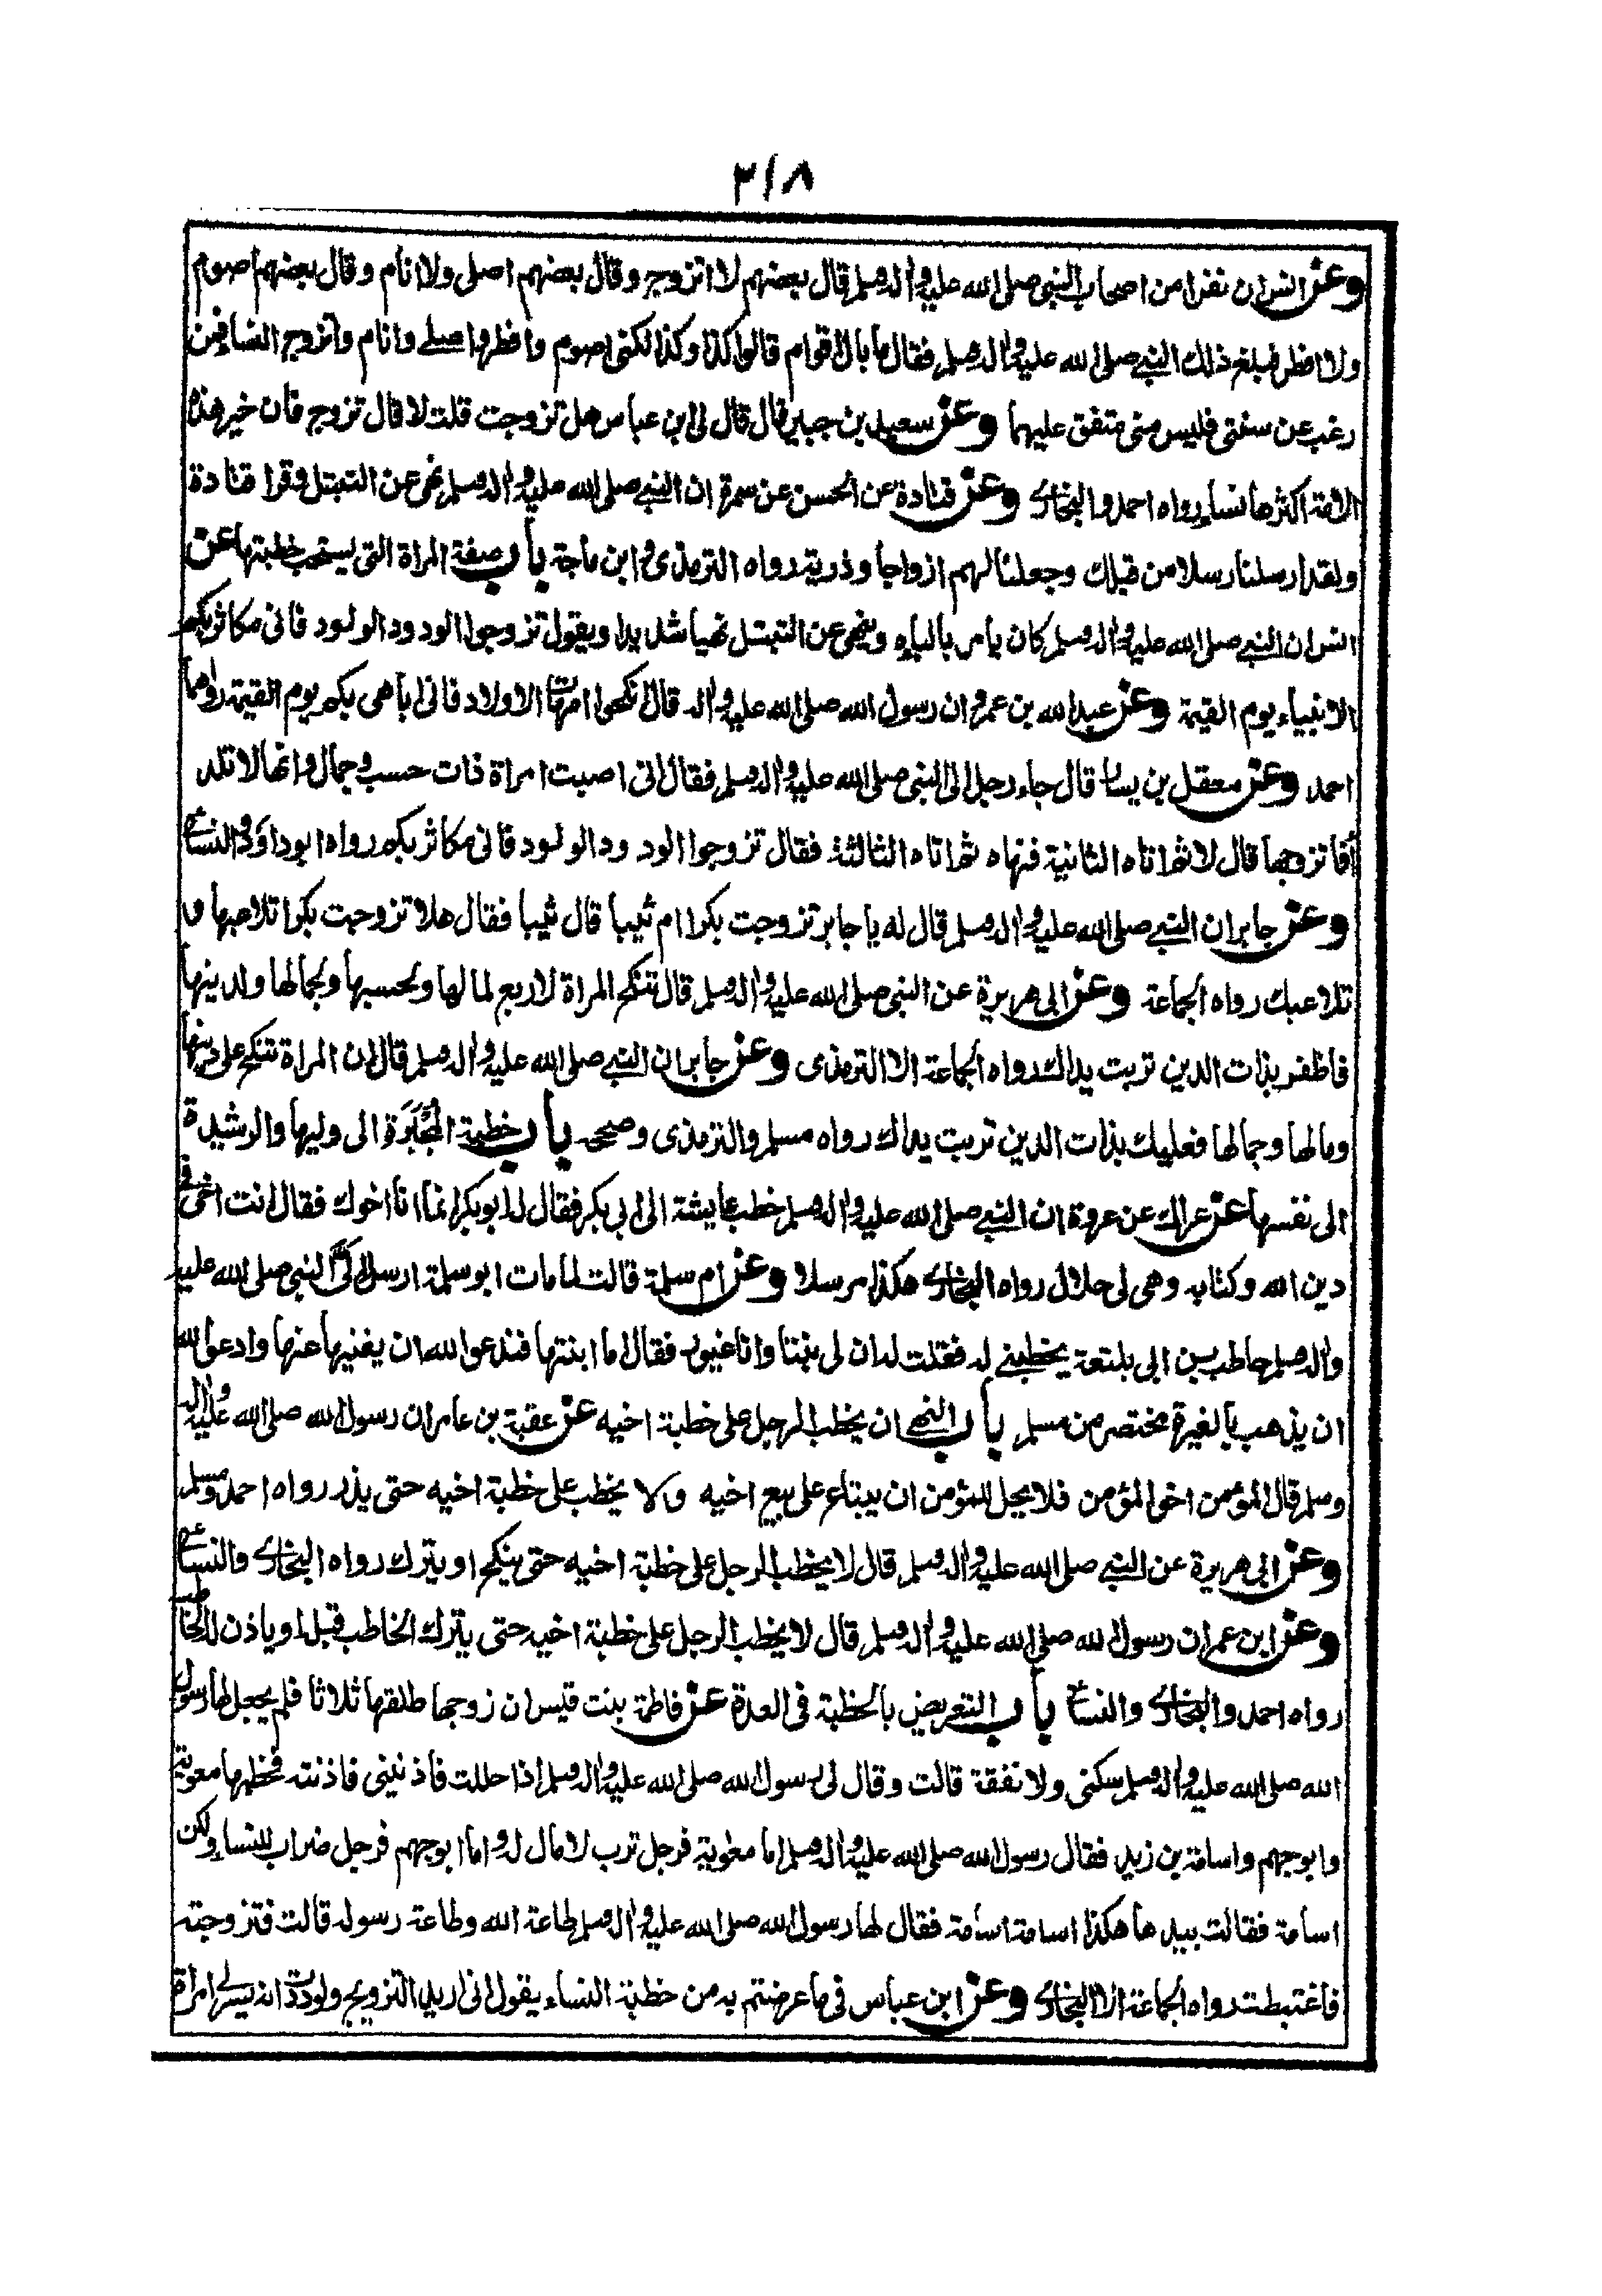 ٣١٨
وعن انس ان نفرا من اصحاب النبى صلى الله عليه واله وسلم قال بعضهم لا اتزوج وقال بعضهم اصلى ولا انام وقال بعضهم اصوم
ولا افطر فبلغ ذلك النبي صلى الله عليه واله وسلم فقال ما بال اقوام قالوا كذا وكذا لكنى اصوم وافطر واصلے وانام واتزوج النساء فمن
رغب عن سنتى فليس منى متفق عليهما وعن سعيد بن جبير قال قال لى ابن عباس هل تزوجت قلت لا قال تزوج فان خير هذه
الامة اكثرها نساء رواه احمد والبخارى وعن قتادة عن الحسن عن سمرة ان النبي صلى الله عليه واله وسلم نهى عن التبتل وقرا قتادة
ولقد ارسلنا رسلا من قبلك وجعلنا لهم ازواجا وذرية رواه الترمذى وابن ماجة باب صفة المراة التى يستحب خطبتها عن
انس ان النبي صلى الله عليه واله وسلم كان يامر بالباء وينهى عن التبتل نهيا شديدا ويقول تزوجوا الودود الولود فانى مكاثر بكم
الانبياء يوم القيمة وعن عبد الله بن عمرو ان رسول الله صلى الله عليه واله قال انكحوا امهات الاولاد فانى اباهى بكم يوم القيمة رواهما
احمد وعن معقل بن يسار قال جاء رجل الى النبى صلى الله عليه واله وسلم فقال انى اصبت امراة ذات حسب وجمال وانها لا تلد
أفاتزوجها قال لا ثم اتاه الثانية فنهاه ثم اتاه الثالثة فقال تزوجوا الودود الولود فانى مكاثر بكم رواه ابوداؤد والنسائى
وعن جابر ان النبي صلى الله عليه واله وسلم قال له يا جابر تزوجت بكرا ام ثيبا قال ثيبا فقال هلا تزوجت بكرا تلاعبها و
تلاعبك رواه الجماعة وعن ابى هريرة عن النبى صلى الله عليه واله وسلم قال تنكح المراة لاربع لمالها ولحسبها ولجمالها ولدينها
فاظفر بذات الدين تربت يداك رواه الجماعة الا الترمذى وعن جابر ان النبي صلى الله عليه واله وسلم قال ان المراة تنكح على دينها
ومالها وجمالها فعليك بذات الدين تربت يداك رواه مسلم والترمذى وصححه باب خطبة المجبرة الى وليها والرشيدة
الى نفسها عن عراك عن عروة ان النبي صلى الله عليه واله وسلم خطب عايشة الى ابى بكر فقال له ابوبكر انما انا اخوك فقال انت اخى فى
دين الله وكتابه وهى لى حلال رواه البخارى هكذا مرسلا وعن ام سلمة قالت لما مات ابو سلمة ارسل الىّ النبى صلى الله عليه
واله وسلم حاطب بن ابى بلتعة يخطبنے له فقلت له ان لى بنتا وانا غيور فقال اما ابنتها فندعوا الله ان يغنيها عنها وادعو الله
ان يذهب بالغيرة مختصر من مسلم باب النهے ان يخطب الرجل على خطبة اخيه عن عقبة بن عامر ان رسول الله صلى الله عليه واله
وسلم قال المؤمن اخو المؤمن فلا يحل للمؤمن ان يبتاع على بيع اخيه ولا يخطب على خطبة اخيه حتى يذر رواه احمد ومسلم
وعن ابى هريرة عن النبي صلى الله عليه واله وسلم قال لا يخطب الرجل على خطبة اخيه حتى ينكح او يترك رواه البخارى والنسائى
وعن ابن عمر ان رسول الله صلى الله عليه واله وسلم قال لا يخطب الرجل على خطبة اخيه حتى يترك الخاطب قبله او ياذن له الخاطب
رواه احمد والبخارى والنسائى باب التعريض بالخطبة فى العدة عن فاطمة بنت قيس ان زوجها طلقها ثلاثا فلم يجعل لها رسول
الله صلى الله عليه واله وسلم سكنى ولا نفقة قالت وقال لى رسول الله صلى الله عليه واله وسلم اذا حللت فأذنينى فاذنته فخطبها معوية
وابوجهم واسامة بن زيد فقال رسول الله صلى الله عليه واله وسلم اما معوية فرجل ترب لا مال له واما ابوجهم فرجل ضراب للنساء ولكن
اسامة فقالت بيدها هكذا اسامة اسامة فقال لها رسول الله صلى الله عليه واله وسلم طاعة الله وطاعة رسوله قالت فتزوجته
فاغتبطت رواه الجماعة الا البخارى وعن ابن عباس فى ما عرضتم به من خطبة النساء يقول انى اريد التزويج ولوددت انه يسر لى امراة